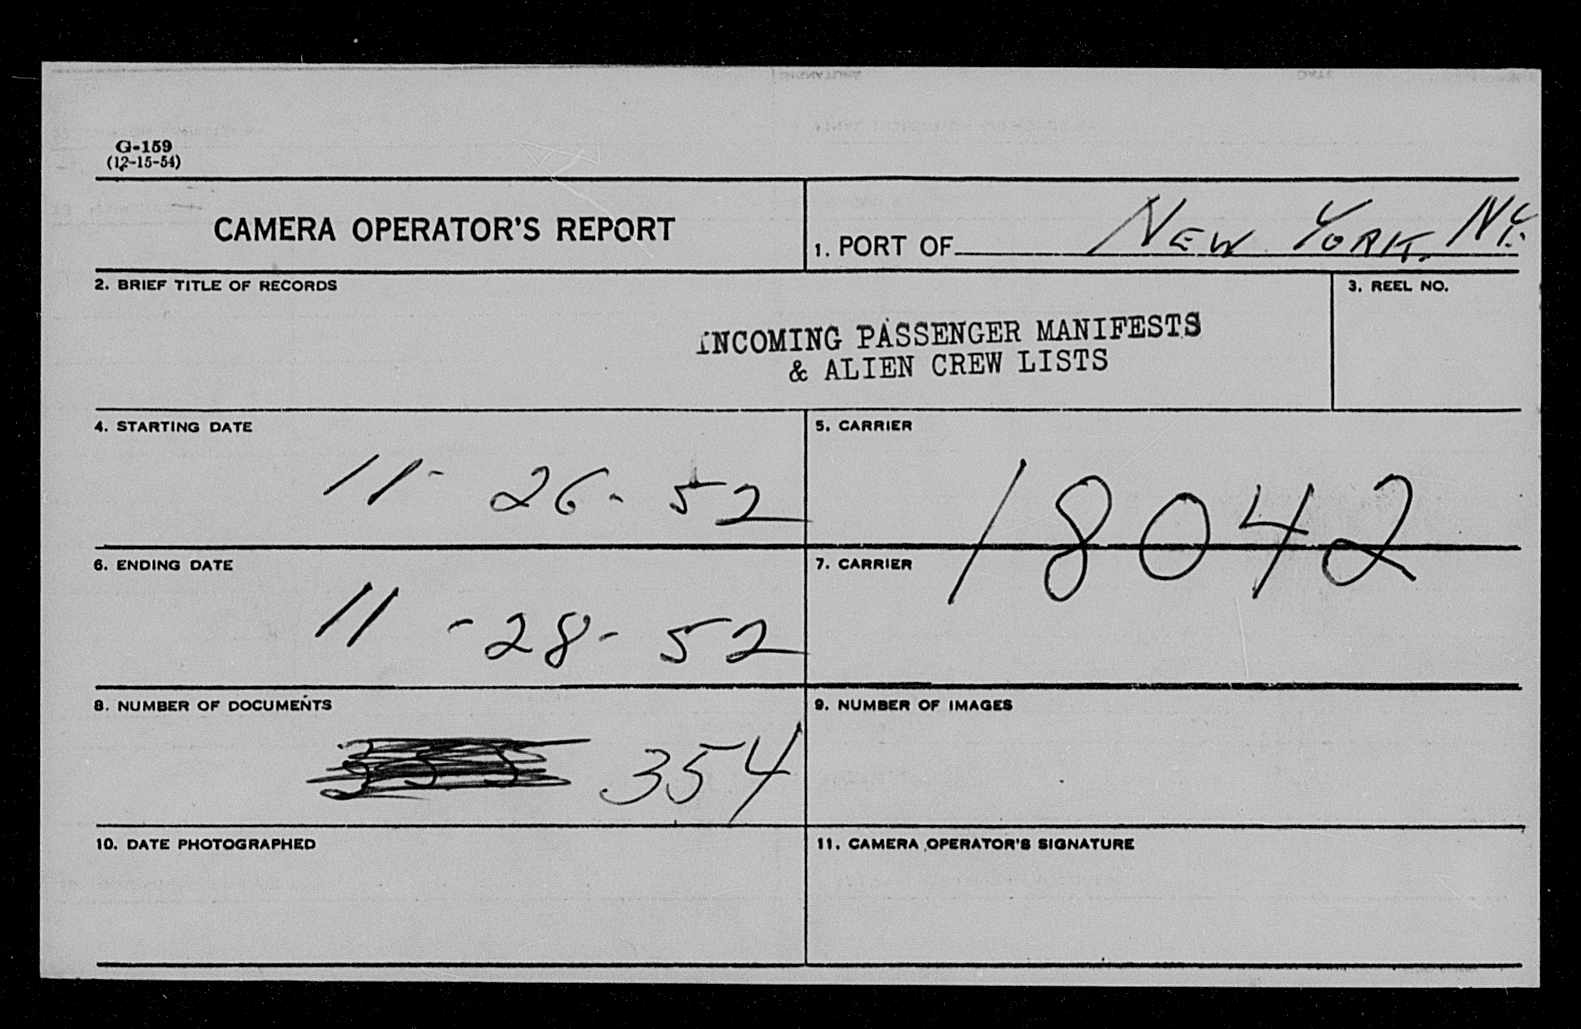 G-159
(12-15-54)
CAMERA OPERATOR'S REPORT
1. PORT OF NEW YORK, NY.
2. BRIEF TITLE OF RECORDS
INCOMING PASSENGER MANIFESTS
& ALIEN CREW LISTS
3. REEL NO.
4. STARTING DATE
11-26-52
5. CARRIER
18042
6. ENDING DATE
11-28-52
7. CARRIER
8. NUMBER OF DOCUMENTS
354
9. NUMBER OF IMAGES
10. DATE PHOTOGRAPHED
11. CAMERA OPERATOR'S SIGNATURE